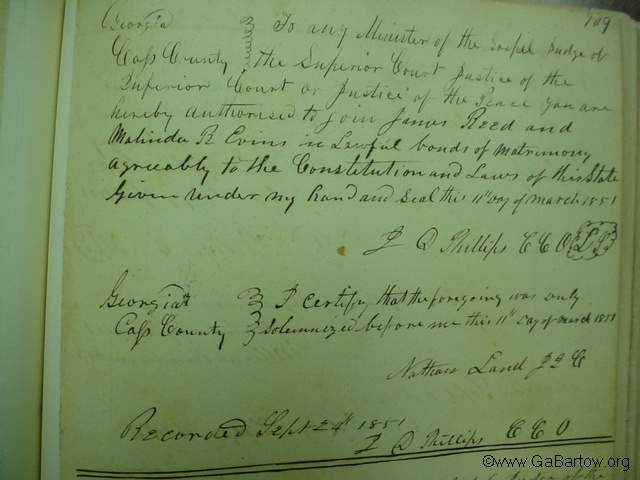 109
Georgia } To any Minister of the Gospel Judge of
Cass County } the Superior Court Justice of the
Inferior Court or Justice of the Peace you are
hereby authorised to join James Reed and
Malinda R Evins in Lawful bonds of matrimony
agreeably to the Constitution and Laws of this State
Given under my hand and Seal this 11th Day of March 1851
D Phillips C C O L S
Georgia } I certify that the foregoing was duly
Cass County } Solemnized before me this 11th Day of March 1851
Nathan Land
Recorded Sept 24th 1851
D Phillips C C O
©www.GaBartow.org